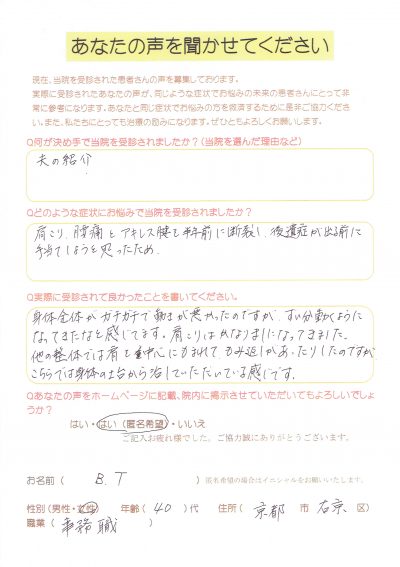 あなたの声を聞かせてください
現在、当院を受診された患者さんの声を募集しております。
実際に受診されたあなたの声が、同じような症状でお悩みの未来の患者さんにとって非
常に参考になります。あなたと同じ症状でお悩みの方を救済するために是非ご協力くださ
い。また、私たちにとっても治療の励みになります。ぜひともよろしくお願いします。
Q何が決め手で当院を受診されましたか?(当院を選んだ理由など)
夫の紹介
Qどのような症状にお悩みで当院を受診されましたか?
肩こり、腰痛とアキレス腱を半年前に断裂し、後遺症が出る前に
手当てしようと思ったため。
Q実際に受診されて良かったことを書いてください。
身体全体がカチカチで動きが悪かったのですが、ずい分動くように
なってきたなと感じてます。肩こりはかなりましになってきました。
他の整体では肩を重中心にもまれてもみ返しがあったりしたのですが
こちらでは身体の土台から治していただいている感じです。
Qあなたの声をホームページに記載、院内に掲示させていただいてもよろしいでしょ
うか?
はい・はい(匿名希望)・いいえ
ご記入お疲れ様でした。ご協力誠にありがとうございます。
お名前( B.T )匿名希望の場合はイニシャルをお願いいたします。
性別(男性・女性) 年齢( 40 )代 住所( 京都 市 右京 区)
職業( 事務職 )